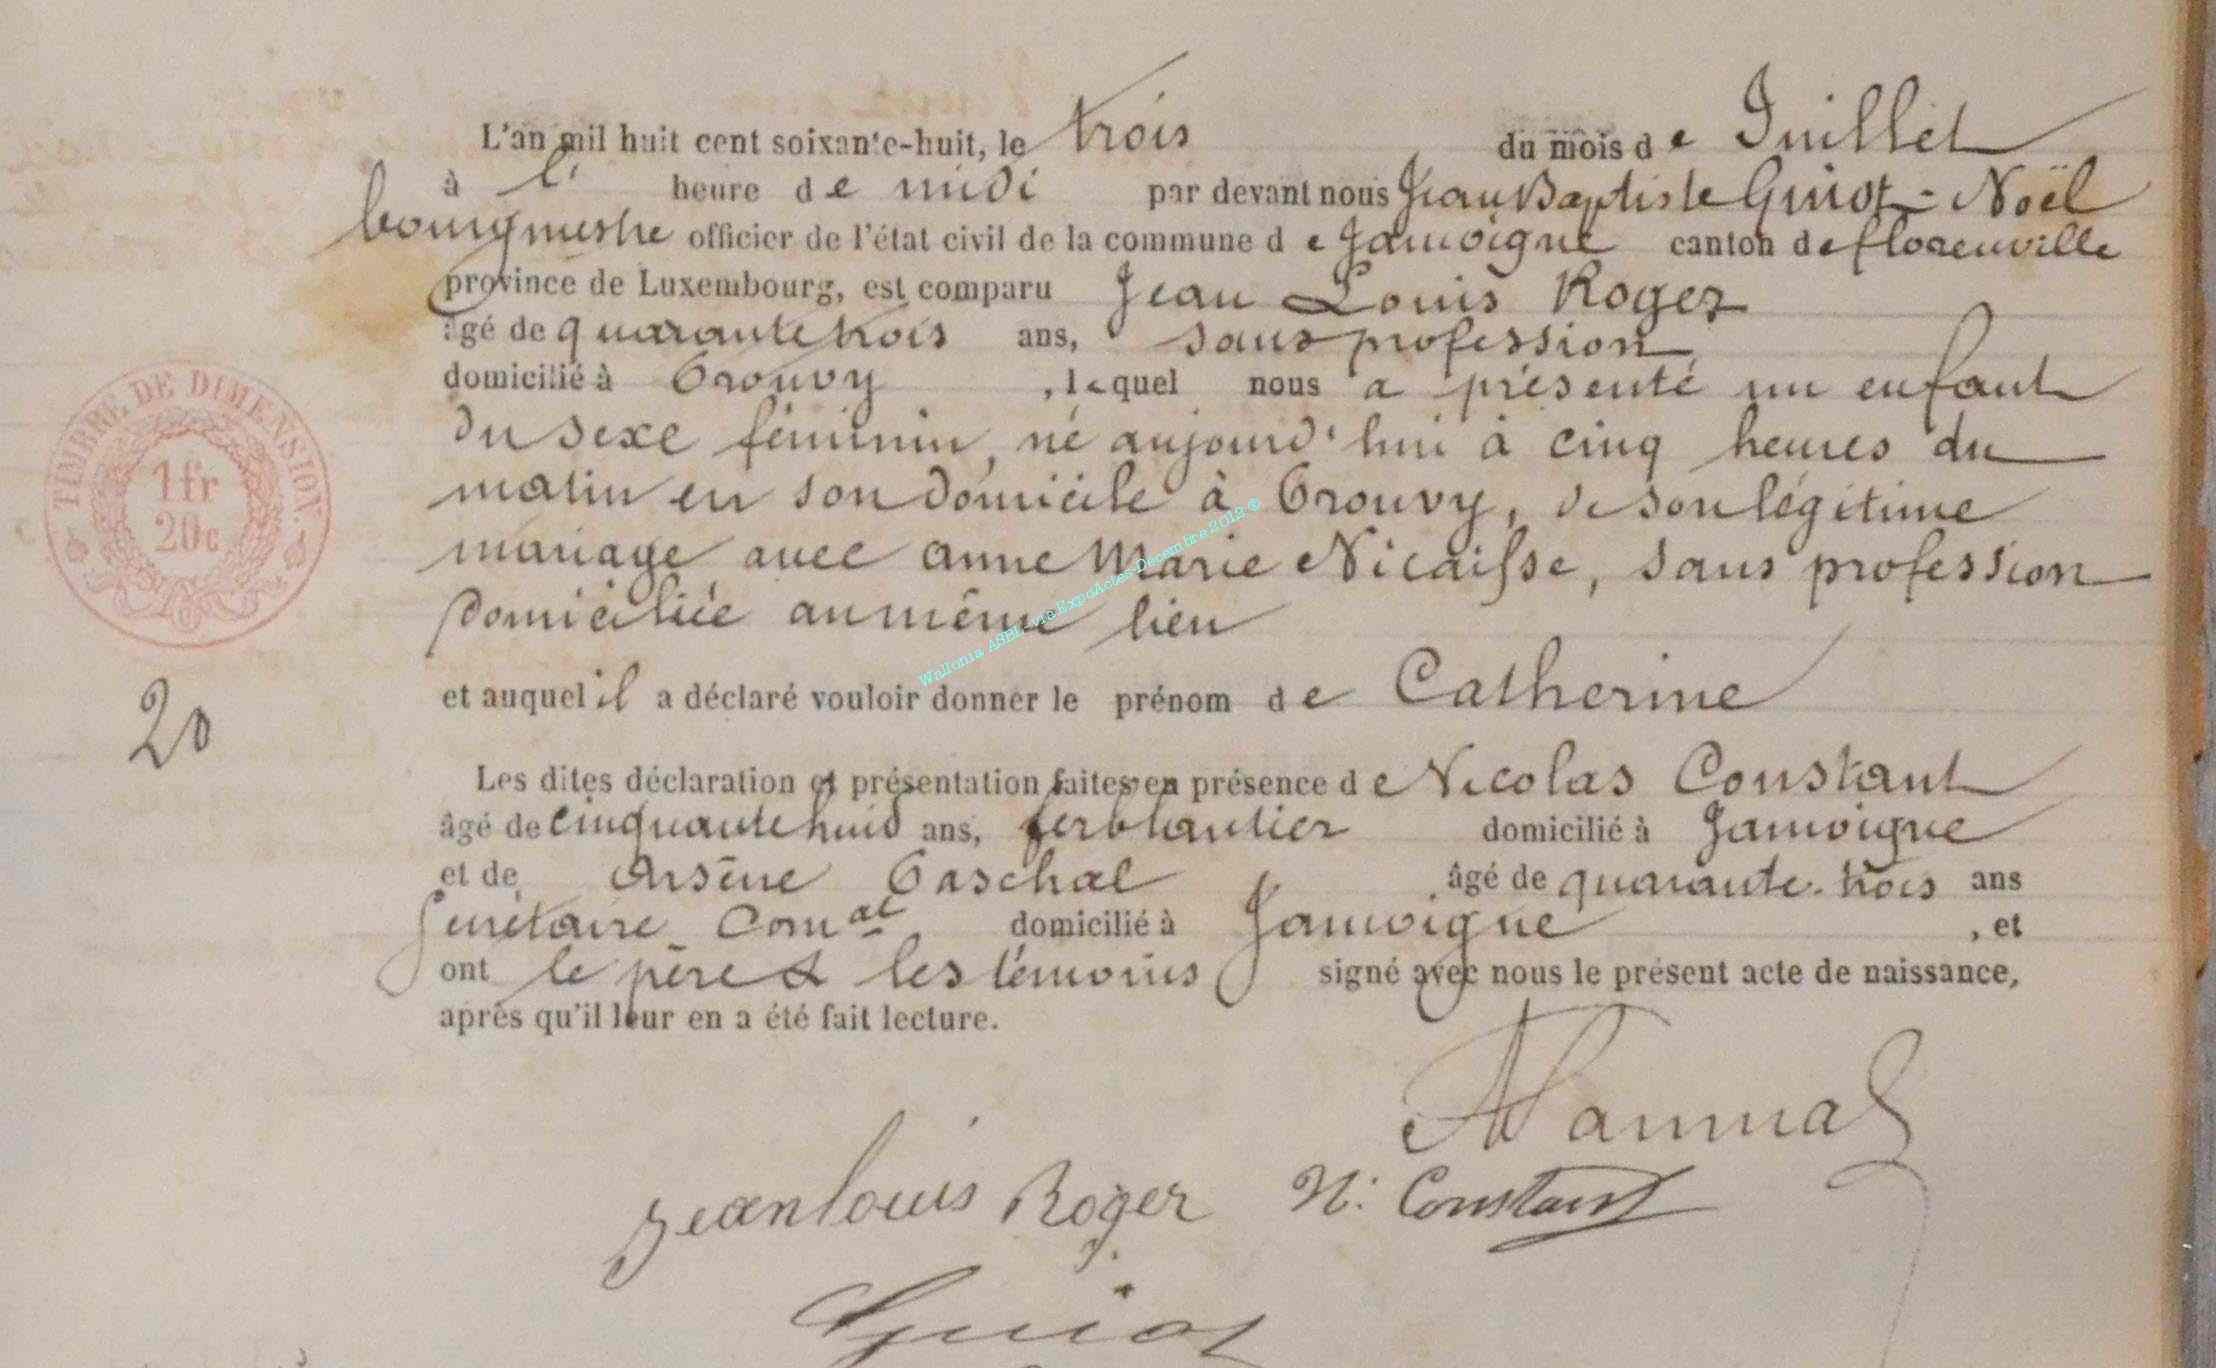 L'an mil huit cent soixante-huit, le trois du mois de Juillet
à l' heure de midi par devant nous Jean Baptiste Guiot-Noël
bourgmestre officier de l'état civil de la commune de Jamoigne canton de florenville
province de Luxembourg, est comparu Jean Louis Roger
âgé de quarante trois ans, sans profession
domicilié à Prouvy, lequel nous a présenté un enfant
du sexe féminin, né aujourd'hui à cinq heures du
matin en son domicile à Prouvy, de son légitime
mariage avec anne Marie Nicaisse, sans profession
domiciliée au même lien
et auquel il a déclaré vouloir donner le prénom de Catherine
Les dites déclaration et présentation faites en présence de Nicolas Constant
âgé de cinquante huit ans, ferblantier domicilié à Jamoigne
et de Arsène Paschal âgé de quarante-trois ans
Secrétaire Comal domicilié à Jamoigne, et
ont le père & les témoins signé avec nous le présent acte de naissance,
après qu'il leur en a été fait lecture.
jean louis Roger N: Constant
Guiot
TIMBRE DE DIMENSION.
1 fr
20c
20
Wallonia ASBL ExpoActes Décembre 2012 ©